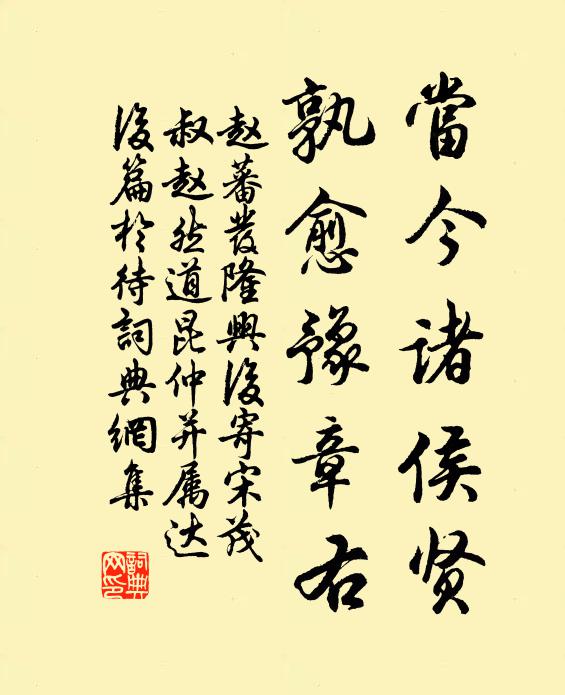 當今诸侯贤
孰愈豫章右
赵蕃發隆興後寄宋茂
叔赵然道昆仲并属达
後篇於待詞典網集
詞典
网印